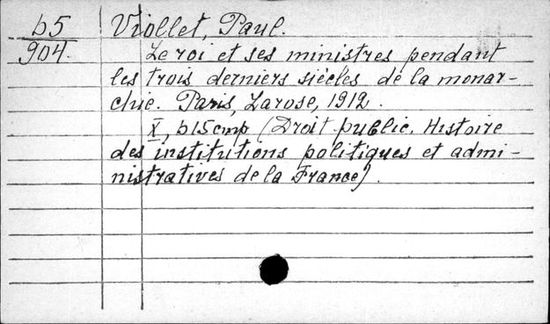 b5
904.
Viollet, Paul.
Le roi et ses ministres pendant
les trois derniers siècles de la monar-
chie. Paris, Larose, 1912.
X, 615 стр (Droit public. Histoire
des institutions politiques et admi-
nistratives de la France).